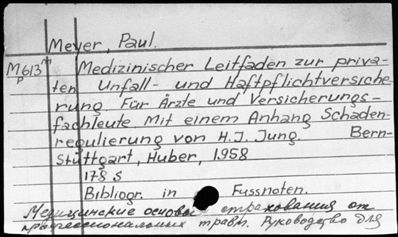 Meyer, Paul.
M613m Medizinischer Leitfaden zur priva-
p ten Unfall- und Haftpflichtversiche-
rung Für Ärzte und Versicherungs-
fachleute Mit einem Anhang Schaden-
regulierung von H.J. Jung. Bern-
Stuttgart, Huber, 1958
178 s
Bibliogr. in Fussnoten.
Медицинские основы страхования от
профессиональных травм. Руководство для